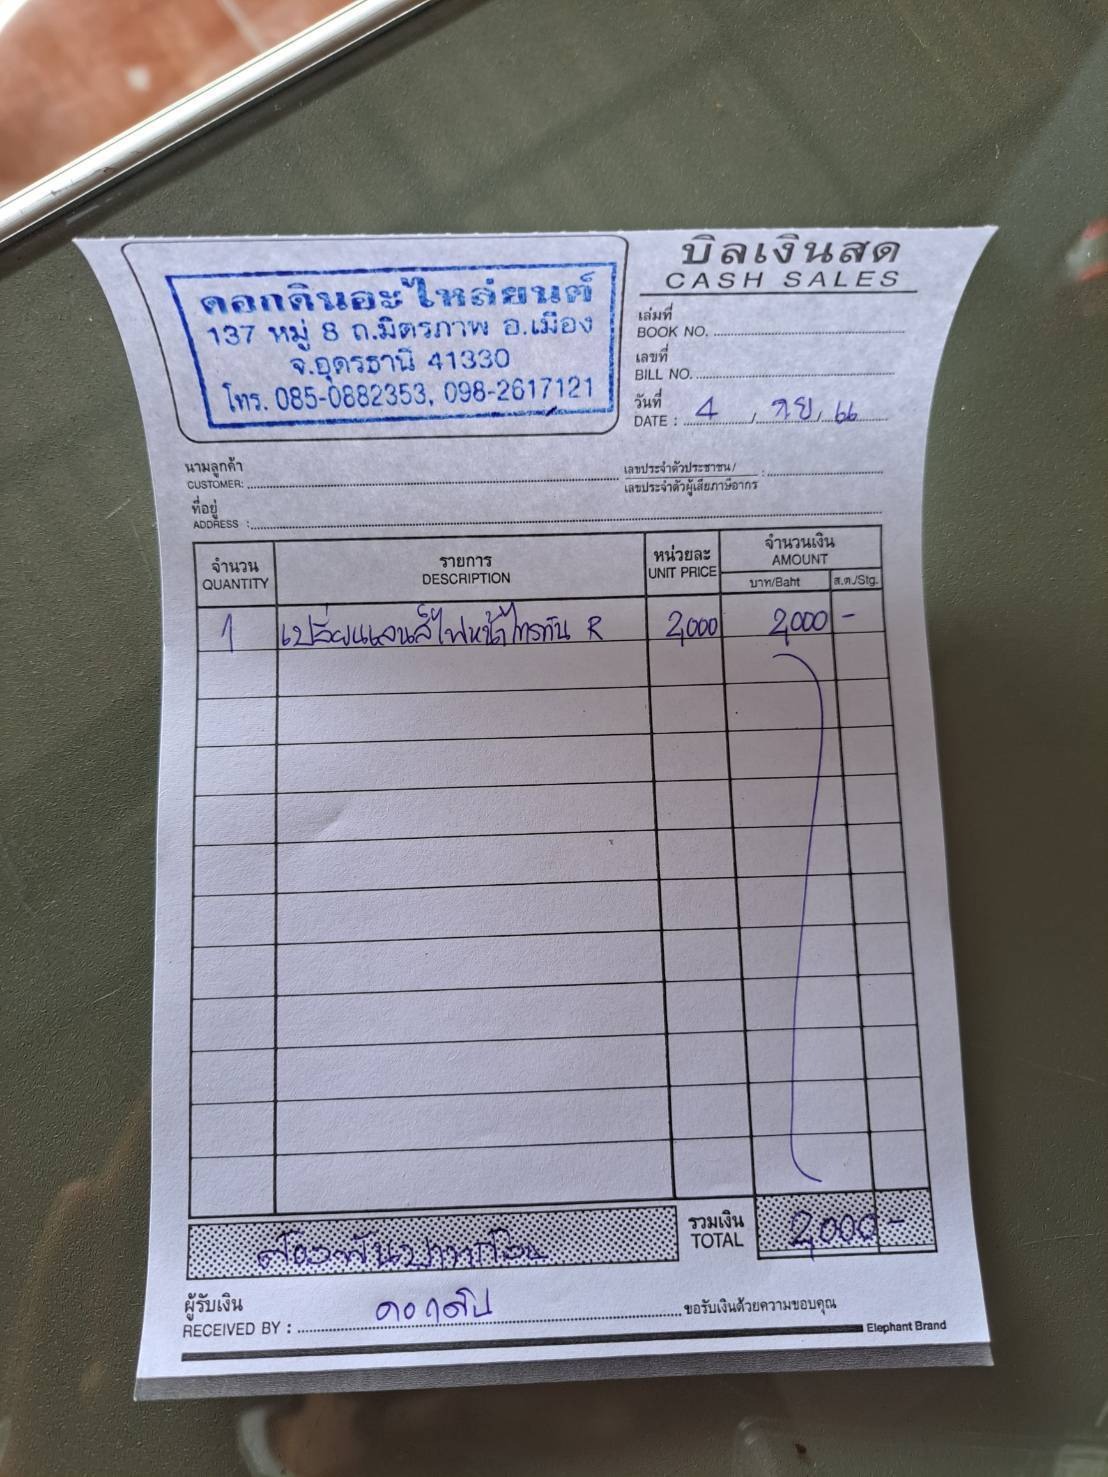 บิลเงินสด
CASH SALES
ดอกดินอะไหล่ยนต์
137 หมู่ 8 ถ.มิตรภาพ อ.เมือง
จ.อุดรธานี 41330
โทร. 085-0882353, 098-2617121
เล่มที่
BOOK NO.
เลขที่
BILL NO.
วันที่
DATE : 4 / กย / 66
นามลูกค้า
CUSTOMER:
เลขประจำตัวประชาชน/ :
เลขประจำตัวผู้เสียภาษีอากร
ที่อยู่
ADDRESS :
จำนวน รายการ หน่วยละ จำนวนเงิน
QUANTITY DESCRIPTION UNIT PRICE AMOUNT
บาท/Baht ส.ต./Stg.
1 เปลี่ยนเลนส์ไฟหน้าไทรทัน R 2,000 2,000 -
สองพันบาทถ้วน
รวมเงิน
TOTAL 2,000 -
ผู้รับเงิน
RECEIVED BY :
ขอรับเงินด้วยความขอบคุณ
Elephant Brand